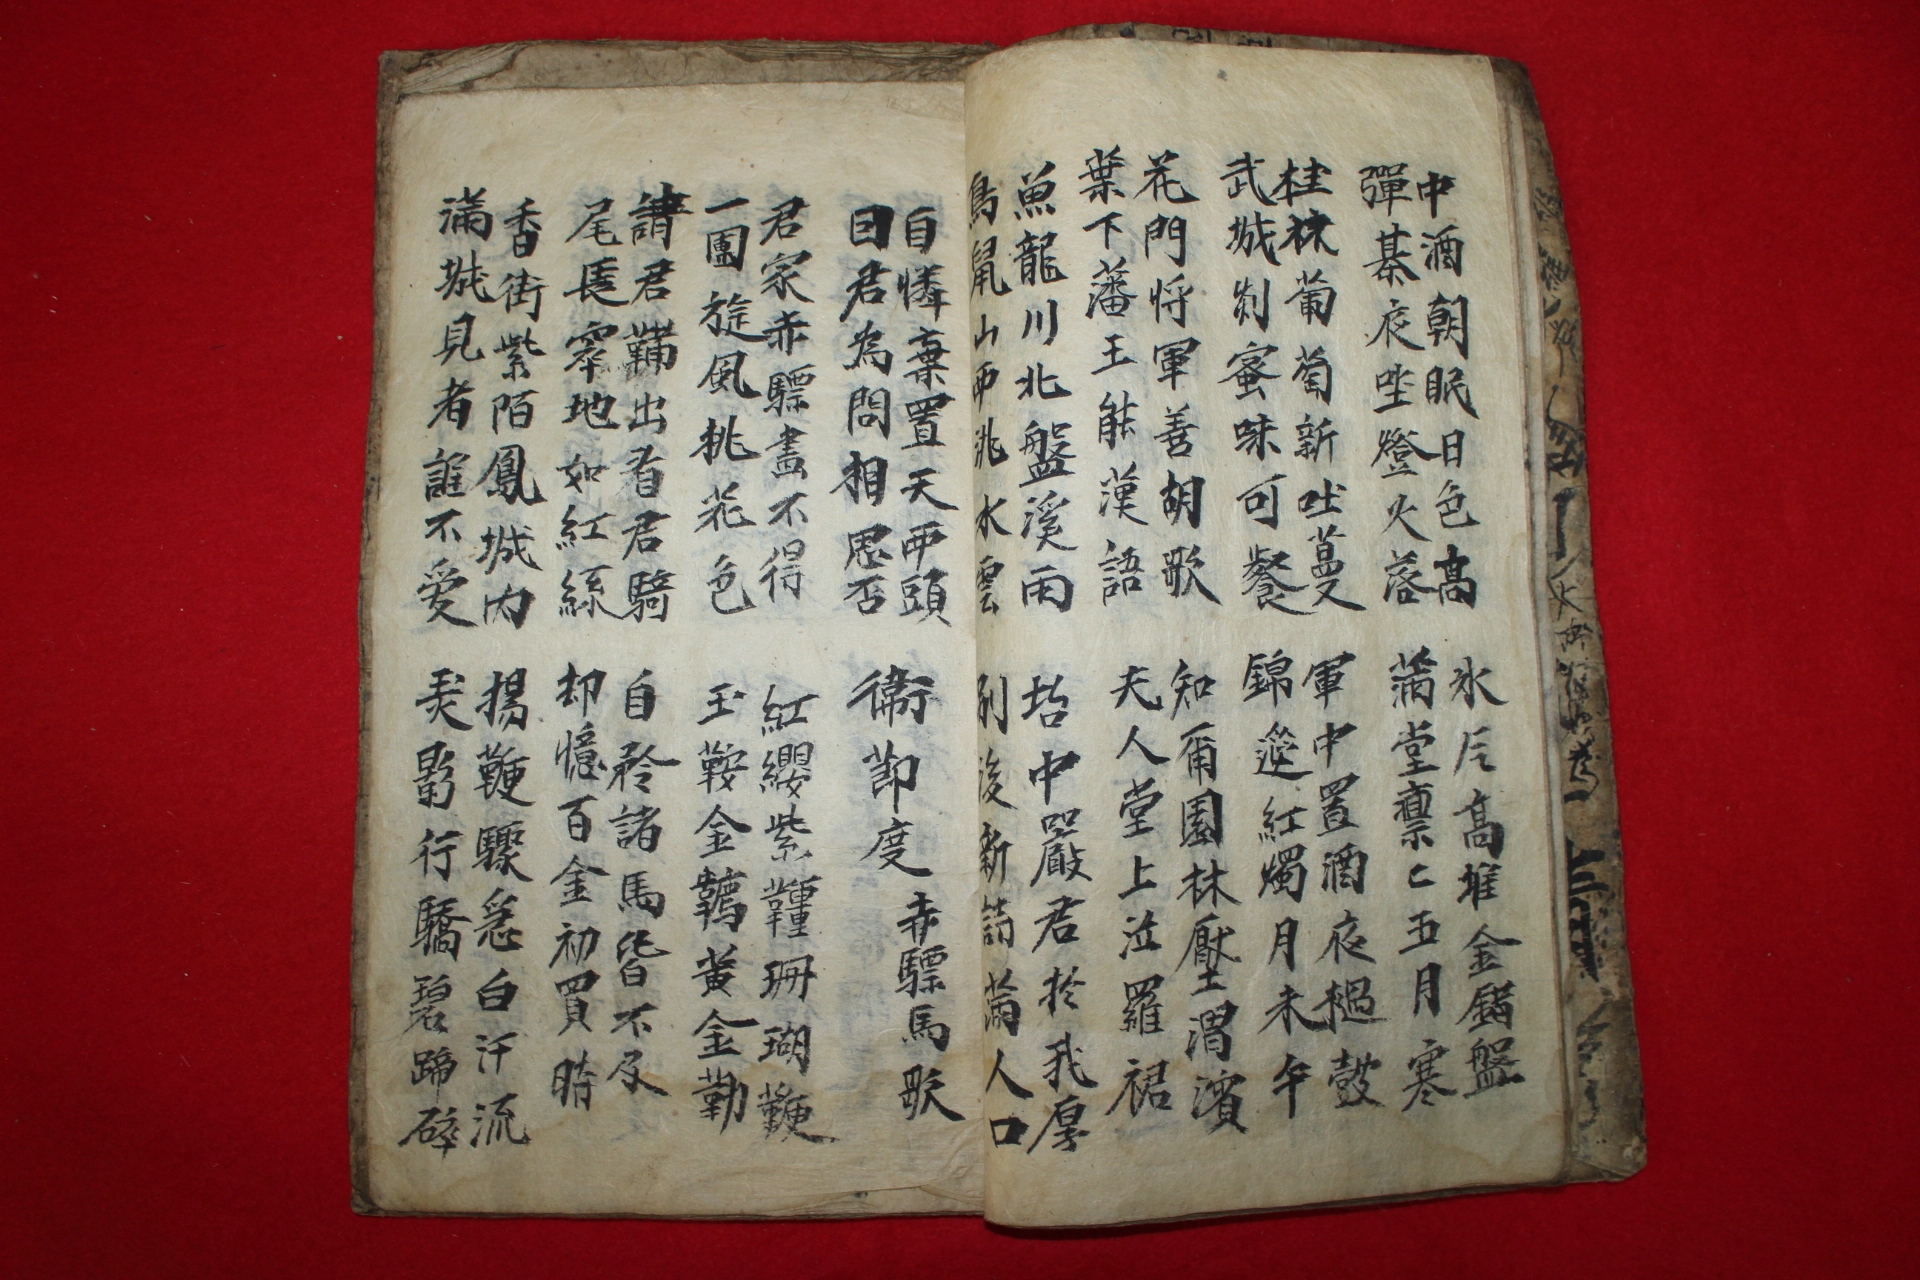 中酒朝眠日色高 氷片高堆金錯盤
彈碁夜坐燈火落 滿堂凜〻五月寒
桂林葡萄新吐蔓 軍中置酒夜撾鼓
武城刺蜜味可餐 錦筵紅燭月未午
花門將軍善胡歌 知爾園林壓渭濱
葉下藩王能漢語 夫人堂上泣羅裙
魚龍川北盤溪雨 坮中嚴君於我厚
鳥鼠山西洮水雲 別後新詩滿人口
自憐棄置天西頭 赤驃馬歌
囙君為問相思否 衛節度
君家赤驃畫不得 紅纓紫韁珊瑚鞭
一團旋風桃花色 玉鞍金韉黃金勒
請君鞴出看君騎 自矜諸馬皆不及
尾長窣地如紅絲 却憶百金初買時
香街紫陌鳳城內 揚鞭驟急白汗流
滿城見者誰不愛 弄影行驕碧蹄碎